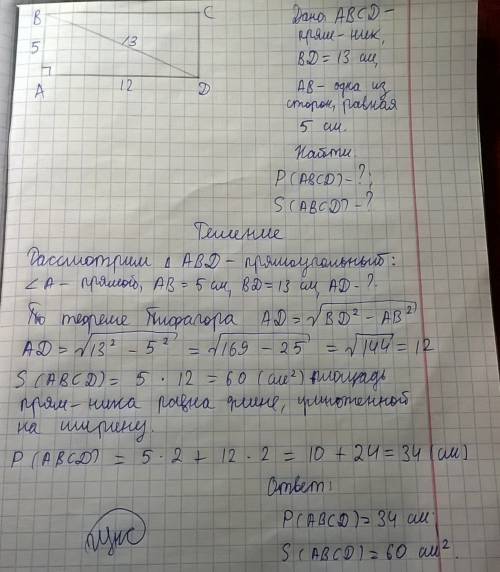 B C
5 13
A 12 D
Дано: ABCD –
прям-ник,
BD = 13 см,
AB – одна из
сторон, равная
5 см.
Найти:
P(ABCD) – ?;
S(ABCD) – ?
Решение
Рассмотрим Δ ABD – прямоугольный:
∠A – прямой, AB = 5 см, BD = 13 см, AD - ?
По теореме Пифагора AD = √(BD² – AB²)
AD = √(13² – 5²) = √(169 – 25) = √144 = 12
S(ABCD) = 5 · 12 = 60 (см²) площадь
прям-ника равна длине, умноженной
на ширину.
P(ABCD) = 5 · 2 + 12 · 2 = 10 + 24 = 34 (см)
Ответ:
P(ABCD) = 34 см
S(ABCD) = 60 см².